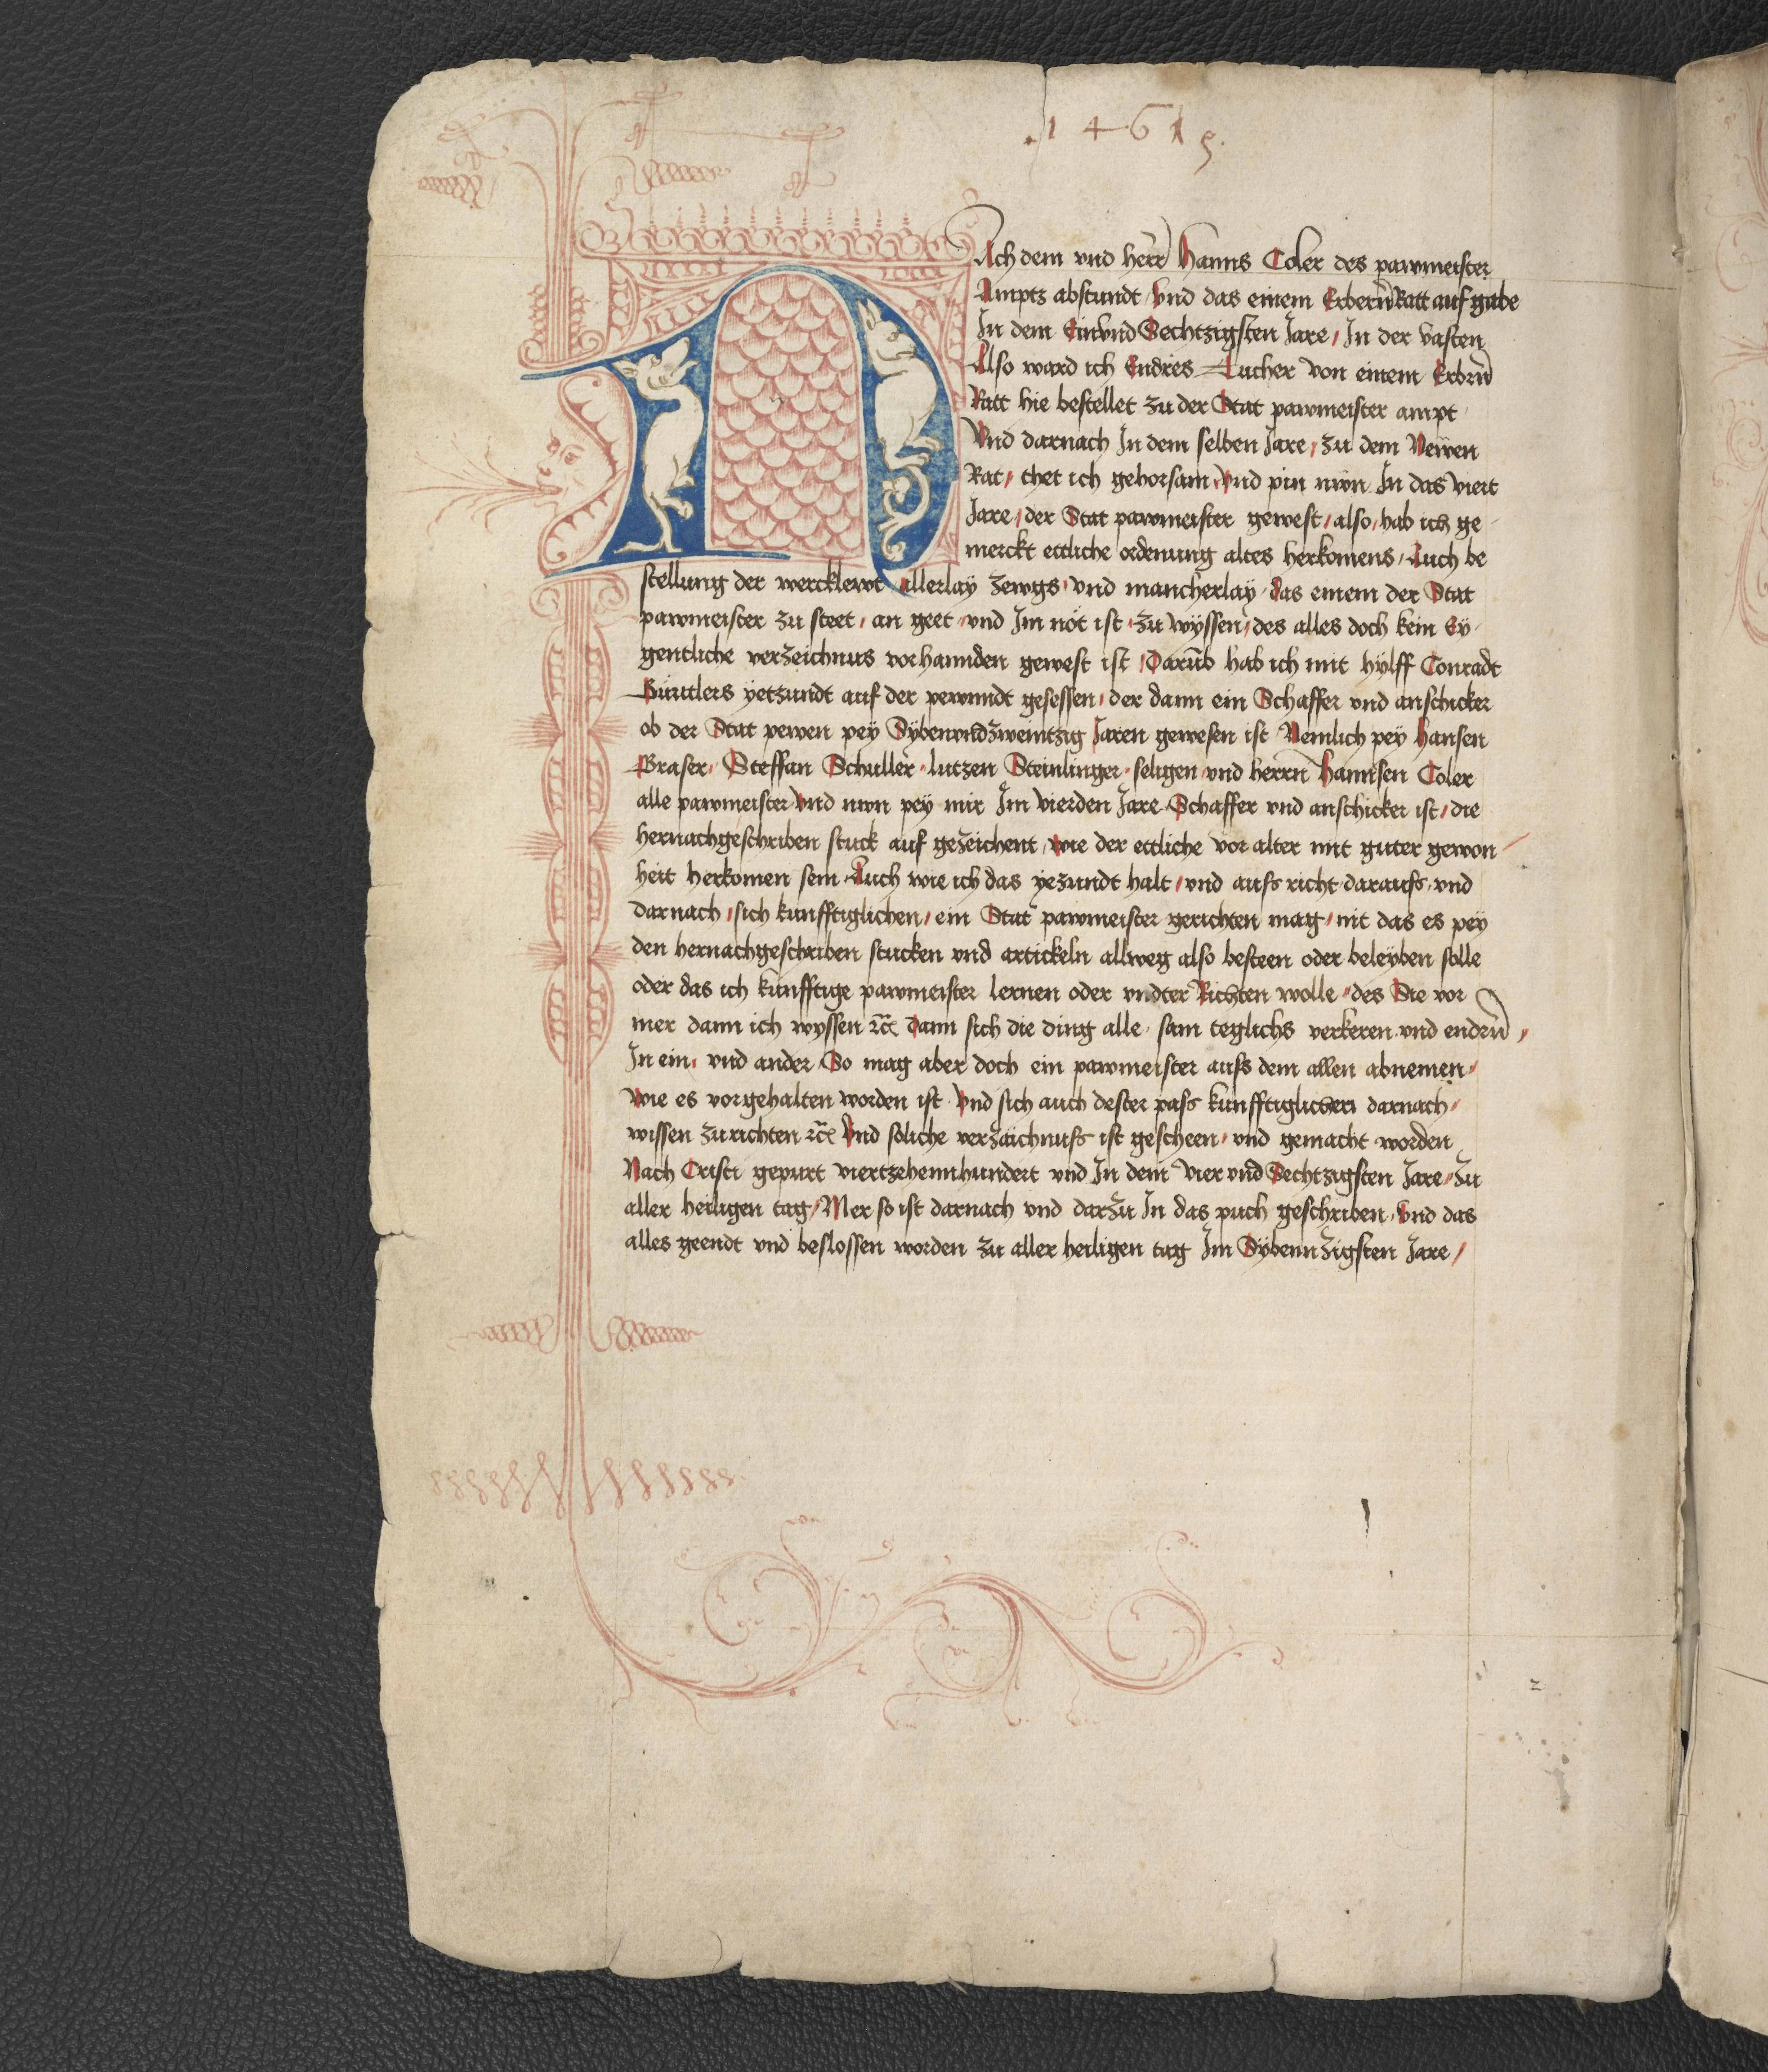 .1461 5.
NAch dem vnd herr Hanns Coler des pawmeister
Amptz abstundt / vnd das einem Erbern Ratt auf gabe
In dem Einvnd Sechtzigsten Jare / In der vasten
Also ward ich Endres Tucher von einem Erbrn
Ratt hie bestellet zu der Stat pawmeister ampt
Vnd darnach In dem selben Jare / zu dem Newen
Rat / thet ich gehorsam / vnd pin nwn In das viert
Jare / der Stat pawmeister gewest / also / hab ich ge
merckt ettliche ordenung altes herkomens / Auch be
stellung der wercklewt Allerlay zewgs / vnd mancherlay / das einem der Stat
pawmeister zu steet / an geet / vnd Im nöt ist / zu wyssen / des alles doch kein Ey
gentliche verzeichnus vorhannden gewest ist / Darūb hab ich mit hylff Conradt
Gürtlers yetzundt auf der pewnndt gesessen / der dann ein Schaffer vnd anschicker
ob der Stat pewen pey Sybenvndzweintzig Jaren gewesen ist Nemlich pey Hansen
Graser / Steffan Schuller / lutzen Steinlinger / seligen / vnd herrn Hannsen Coler
alle pawmeister Vnd nwn pey mir Im vierden Jare Schaffer vnd anschicker ist / die
hernachgeschriben stuck auf gezeichent / wie der ettliche vor alter mit guter gewon
heit herkomen sein Auch wie ich das yezundt halt / vnd aufs richt darauſs vnd
darnach / sich kunfftiglichen / ein Stat pawmeister gerichten mag / nit das es pey
den hernachgeschriben stucken vnd artickeln allweg also besteen oder beleyben solle
oder das ich künfftige pawmeister lernen oder vndter Richten wolle / des Sie vor
mer dann ich wyssen ꝛc̄ dann sich die ding alle sam teglichs verkeren vnd endern /
In ein / vnd ander So mag aber doch ein pawmeister aufs dem allen abnemen /
wie es vorgehalten worden ist Vnd sich auch dester pass künfftiglichen darnach /
wissen zurichten ꝛc̄ Vnd soliche verzaichnuſs ist gescheen / vnd gemacht worden
Nach Cristi gepurt viertzehennhundert vnd In dem Vier vnd Sechtzigsten Jare / Zu
aller heiligen tag / Mer so ist darnach vnd darzu In das puch geschriben / Vnd das
alles geendt vnd beslossen worden zu aller heiligen tag Im Sybennzigsten Jare /
2